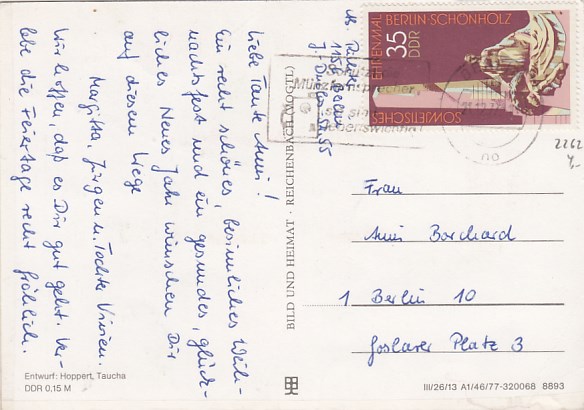 Liebe Tante Anni!
Ein recht schönes, besinnliches Weih-
nachtsfest und ein gesundes, glück-
liches Neues Jahr wünschen Dir
auf diesem Wege
Margitta, Jürgen u. Tochter Vivien.
Wir hoffen, daß es Dir gut geht. Ver-
lebe die Feiertage recht fröhlich.
Entwurf: Hoppert, Taucha
DDR 0,15 M
BILD UND HEIMAT · REICHENBACH (VOGTL)
Abs.
55
Münzfernsprecher
sind
lebenswichtig
EHRENMAL BERLIN-SCHÖNHOLZ
SOWJETISCHES
35
DDR
2262
4,-
Frau
Anni Borchard
1 Berlin 10
Goslarer Platz 3
III/26/13 A1/46/77-320068 8893